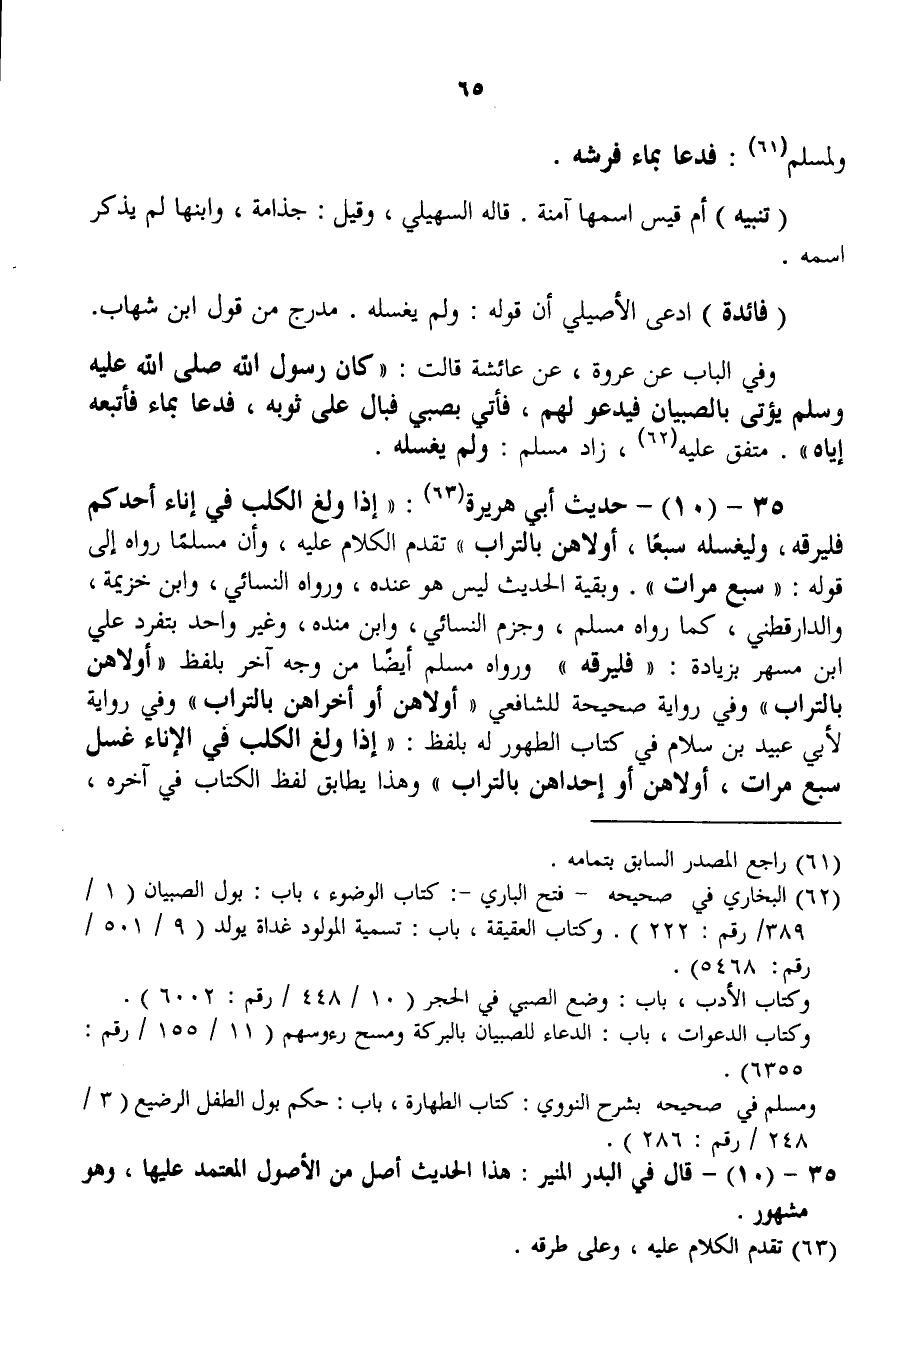 ٦٥
ولمسلم(٦١) : فدعا بماء فرشه .
( تنبيه ) أم قيس اسمها آمنة . قاله السهيلي ، وقيل : جذامة ، وابنها لم يذكر
اسمه .
( فائدة ) ادعى الأصيلي أن قوله : ولم يغسله . مدرج من قول ابن شهاب.
وفي الباب عن عروة ، عن عائشة قالت : « كان رسول الله صلى الله عليه
وسلم يؤتى بالصبيان فيدعو لهم ، فأتي بصبي فبال على ثوبه ، فدعا بماء فأتبعه
إياه» . متفق عليه(٦٢) ، زاد مسلم : ولم يغسله .
٣٥ – (١٠) – حديث أبي هريرة(٦٣) : « إذا ولغ الكلب في إناء أحدكم
فليرقه ، وليغسله سبعًا ، أولاهن بالتراب » تقدم الكلام عليه ، وأن مسلمًا رواه إلى
قوله : « سبع مرات » . وبقية الحديث ليس هو عنده ، ورواه النسائي ، وابن خزيمة ،
والدارقطني ، كما رواه مسلم ، وجزم النسائي ، وابن منده ، وغير واحد بتفرد علي
ابن مسهر بزيادة : « فليرقه » ورواه مسلم أيضًا من وجه آخر بلفظ «أولاهن
بالتراب» وفي رواية صحيحة للشافعي « أولاهن أو أخراهن بالتراب » وفي رواية
لأبي عبيد بن سلام في كتاب الطهور له بلفظ : « إذا ولغ الكلب في الإناء غسل
سبع مرات ، أولاهن أو إحداهن بالتراب » وهذا يطابق لفظ الكتاب في آخره ،
(٦١) راجع المصدر السابق بتمامه .
(٦٢) البخاري في صحيحه – فتح الباري –: كتاب الوضوء ، باب : بول الصبيان ( ١ /
٣٨٩/ رقم : ٢٢٢ ) . وكتاب العقيقة ، باب : تسمية المولود غداة يولد ( ٩ / ٥٠١ /
رقم: ٥٤٦٨) .
وكتاب الأدب ، باب : وضع الصبي في الحجر ( ١٠ / ٤٤٨ / رقم : ٦٠٠٢ ) .
وكتاب الدعوات ، باب : الدعاء للصبيان بالبركة ومسح رءوسهم ( ١١ / ١٥٥ / رقم :
٦٣٥٥) .
ومسلم في صحيحه بشرح النووي : كتاب الطهارة ، باب : حكم بول الطفل الرضيع ( ٣ /
٢٤٨ / رقم : ٢٨٦ ) .
٣٥ – (١٠) – قال في البدر المنير : هذا الحديث أصل من الأصول المعتمد عليها ، وهو
مشهور .
(٦٣) تقدم الكلام عليه ، وعلى طرقه .